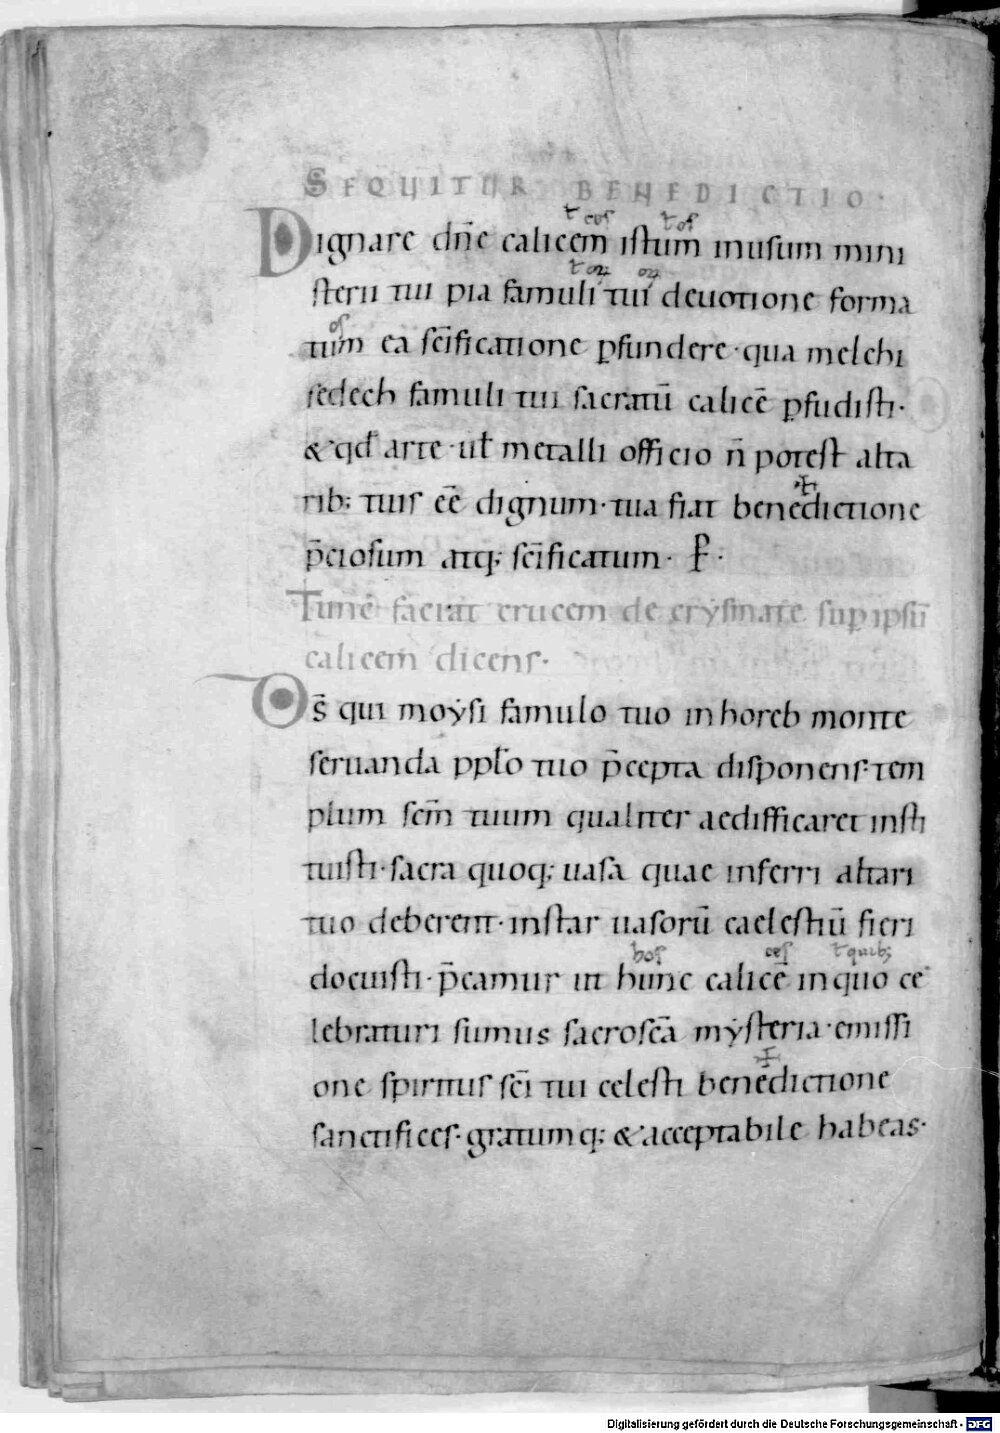 SEQUITUR BENEDICTIO·
ꝉ ces ꝉ os
Dignare dn̄e calicem istum in usum mini
ꝉ oꝝ oꝝ
sterii tui pia famuli tui deuotione forma
os
tum ea sc̄ificatione ꝑfundere· qua melchi
sedech famuli tui sacratū calicē ꝑfudisti·
& qd̄ arte· ut metalli officio n̄ potest alta
rib; tuis eē dignum· tua fiat bene✠dictione
p̄ciosum atq; sc̄ificatum· P·
Tunc faciat crucem de crẏsmate sup ipsū
calicem dicens·
Ds̄ qui moẏsi famulo tuo in horeb monte
seruanda pplo tuo p̄cepta disponens· tem
plum scm̄ tuum qualiter aedifficaret insti
tuisti· sacra quoq; uasa quae inferri altari
tuo deberent· instar uasorū caelestiū fieri
hos ces ꝉ quib;
docuisti· p̄camur ut hunc calicē in quo ce
lebraturi sumus sacrosc̄a mẏsteria· emissi
one spiritus sc̄i tui celesti bene✠dictione
sanctifices· gratumq; & acceptabile habeas·
Digitalisierung gefördert durch die Deutsche Forschungsgemeinschaft - DFG